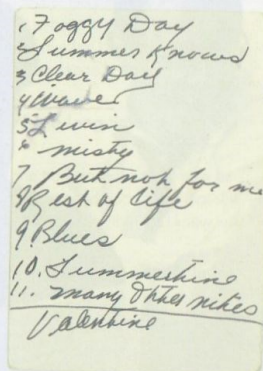 1 Foggy Day
2 Summer Knows
3 Clear Day
4 Wave
5 Livin
6 misty
7 But not for me
8 Rest of life
9 Blues
10. Summertime
11. many other nites
Valentine